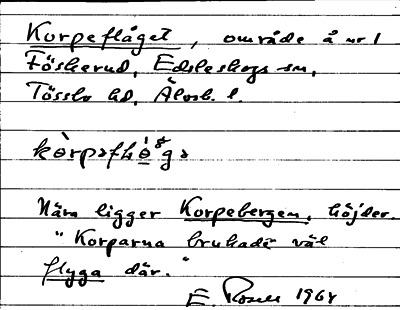 Korpeflåget, område å nr 1
Föskerud, Edsleskogs sn,
Tössbo hd, Älvsb. l.
Nära ligger Korpebergen, höjder.
"Korparna brukade väl
flyga där."
E. 1964